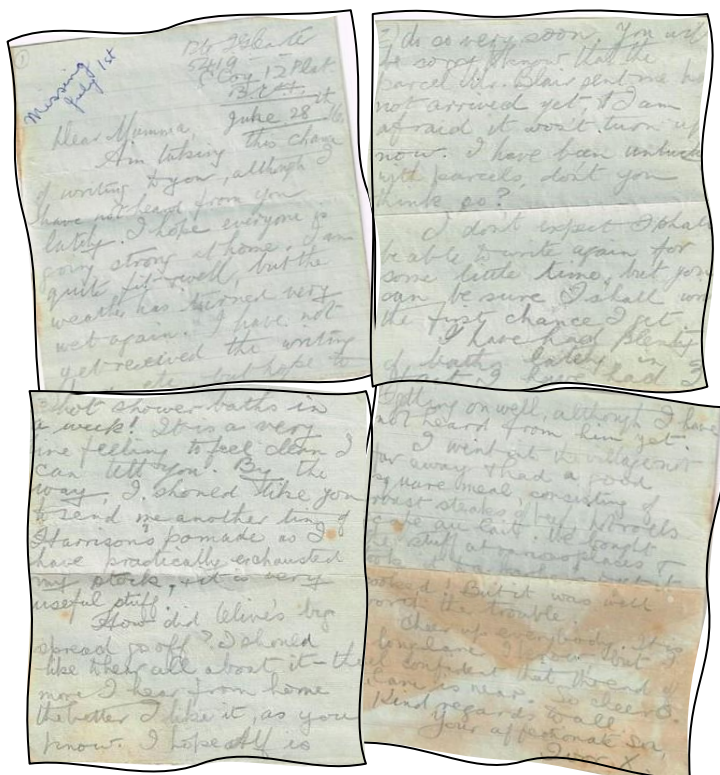 1
Missing
July 1st
5419
C Coy 12 Plat
B.E.F.
June 28th 16.
Dear Mumma,
Am taking this chance
of writing to you, although I
have not heard from you
lately. I hope everyone is
going strong at home. I am
quite fit & well, but the
weather has turned very
wet again. I have not
yet received the writing
but hope to
2) do so very soon. You will
be sorry to know that the
parcel Mr. Blair sent me has
not arrived yet, & I am
afraid it won't turn up
now. I have been unlucky
with parcels, don't you
think so?
I don't expect I shall
be able to write again for
some little time, but you
can be sure I shall
the first chance I get.
I have had plenty
of baths lately in
had 3
hot shower baths in
a week! It is a very
fine feeling to feel clean I
can tell you. By the
way, I should like you
to send me another tin of
Harrison's pomade as I
have practically exhausted
my stock, & it is very
useful stuff.
How did Olive's big
spread go off? I should
like to hear all about it - the
more I hear from home
the better I like it, as you
know. I hope Alf is
getting on well, although I have
not heard from him yet.
I went into the village not
far away & had a good
square meal, consisting of
roast steaks
cafe au lait. We bought
the stuff at
it
But it was well
worth the trouble.
Cheer up everybody. It is
a long lane I know but I
feel confident that the end of
is near. So cheer O.
Kind regards to all
Your affectionate Son,
X